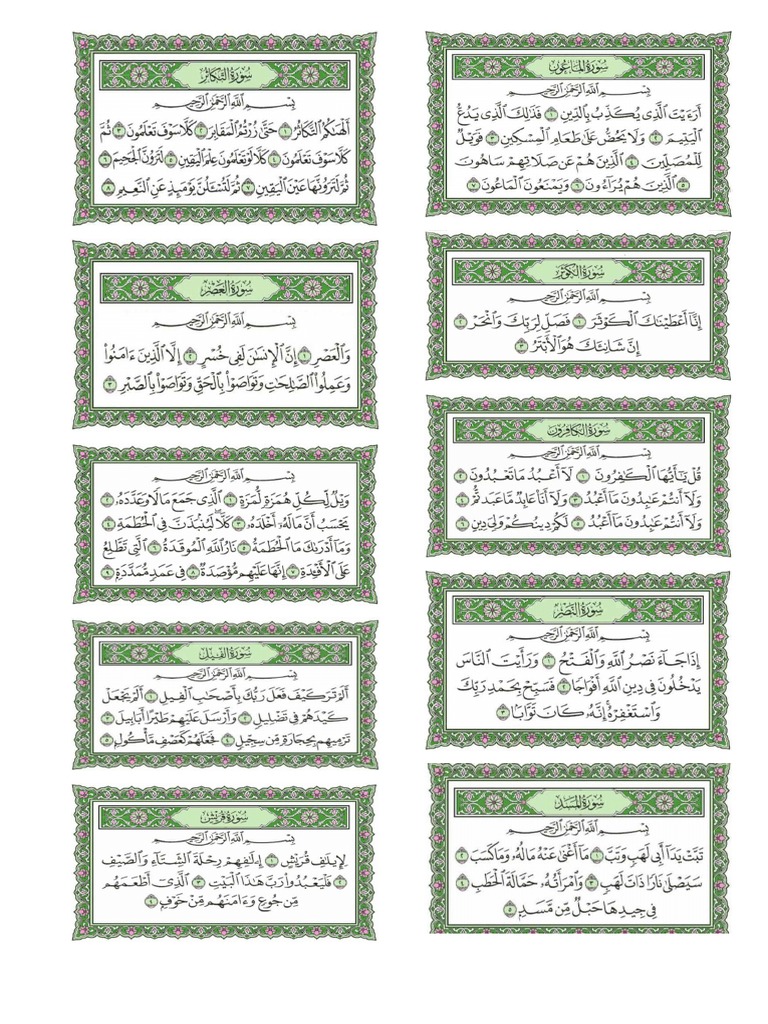 سُورَةُ التَّكَاثُرِ
بِسْمِ اللَّهِ الرَّحْمَٰنِ الرَّحِيمِ
أَلْهَىٰكُمُ التَّكَاثُرُ ١ حَتَّىٰ زُرْتُمُ الْمَقَابِرَ ٢ كَلَّا سَوْفَ تَعْلَمُونَ ٣ ثُمَّ
كَلَّا سَوْفَ تَعْلَمُونَ ٤ كَلَّا لَوْ تَعْلَمُونَ عِلْمَ الْيَقِينِ ٥ لَتَرَوُنَّ الْجَحِيمَ ٦
ثُمَّ لَتَرَوُنَّهَا عَيْنَ الْيَقِينِ ٧ ثُمَّ لَتُسْـَٔلُنَّ يَوْمَئِذٍ عَنِ النَّعِيمِ ٨
سُورَةُ الْعَصْرِ
بِسْمِ اللَّهِ الرَّحْمَٰنِ الرَّحِيمِ
وَالْعَصْرِ ١ إِنَّ الْإِنسَٰنَ لَفِى خُسْرٍ ٢ إِلَّا الَّذِينَ ءَامَنُوا۟
وَعَمِلُوا۟ الصَّٰلِحَٰتِ وَتَوَاصَوْا۟ بِالْحَقِّ وَتَوَاصَوْا۟ بِالصَّبْرِ ٣
بِسْمِ اللَّهِ الرَّحْمَٰنِ الرَّحِيمِ
وَيْلٌ لِّكُلِّ هُمَزَةٍ لُّمَزَةٍ ١ الَّذِى جَمَعَ مَالًا وَعَدَّدَهُۥ ٢
يَحْسَبُ أَنَّ مَالَهُۥٓ أَخْلَدَهُۥ ٣ كَلَّا ۖ لَيُنۢبَذَنَّ فِى الْحُطَمَةِ ٤
وَمَآ أَدْرَىٰكَ مَا الْحُطَمَةُ ٥ نَارُ اللَّهِ الْمُوقَدَةُ ٦ الَّتِى تَطَّلِعُ
عَلَى الْأَفْـِٔدَةِ ٧ إِنَّهَا عَلَيْهِم مُّؤْصَدَةٌ ٨ فِى عَمَدٍ مُّمَدَّدَةٍۭ ٩
سُورَةُ الْفِيلِ
بِسْمِ اللَّهِ الرَّحْمَٰنِ الرَّحِيمِ
أَلَمْ تَرَ كَيْفَ فَعَلَ رَبُّكَ بِأَصْحَٰبِ الْفِيلِ ١ أَلَمْ يَجْعَلْ
كَيْدَهُمْ فِى تَضْلِيلٍ ٢ وَأَرْسَلَ عَلَيْهِمْ طَيْرًا أَبَابِيلَ ٣
تَرْمِيهِم بِحِجَارَةٍ مِّن سِجِّيلٍ ٤ فَجَعَلَهُمْ كَعَصْفٍ مَّأْكُولٍۭ ٥
سُورَةُ قُرَيْشٍ
بِسْمِ اللَّهِ الرَّحْمَٰنِ الرَّحِيمِ
لِإِيلَٰفِ قُرَيْشٍ ١ إِۦلَٰفِهِمْ رِحْلَةَ الشِّتَآءِ وَالصَّيْفِ
٢ فَلْيَعْبُدُوا۟ رَبَّ هَٰذَا الْبَيْتِ ٣ الَّذِىٓ أَطْعَمَهُم
مِّن جُوعٍ وَءَامَنَهُم مِّنْ خَوْفٍۭ ٤
سُورَةُ الْمَاعُونِ
بِسْمِ اللَّهِ الرَّحْمَٰنِ الرَّحِيمِ
أَرَءَيْتَ الَّذِى يُكَذِّبُ بِالدِّينِ ١ فَذَٰلِكَ الَّذِى يَدُعُّ
الْيَتِيمَ ٢ وَلَا يَحُضُّ عَلَىٰ طَعَامِ الْمِسْكِينِ ٣ فَوَيْلٌ
لِّلْمُصَلِّينَ ٤ الَّذِينَ هُمْ عَن صَلَاتِهِمْ سَاهُونَ
٥ الَّذِينَ هُمْ يُرَآءُونَ ٦ وَيَمْنَعُونَ الْمَاعُونَ ٧
سُورَةُ الْكَوْثَرِ
بِسْمِ اللَّهِ الرَّحْمَٰنِ الرَّحِيمِ
إِنَّآ أَعْطَيْنَٰكَ الْكَوْثَرَ ١ فَصَلِّ لِرَبِّكَ وَانْحَرْ ٢
إِنَّ شَانِئَكَ هُوَ الْأَبْتَرُ ٣
سُورَةُ الْكَافِرُونَ
بِسْمِ اللَّهِ الرَّحْمَٰنِ الرَّحِيمِ
قُلْ يَٰٓأَيُّهَا الْكَٰفِرُونَ ١ لَآ أَعْبُدُ مَا تَعْبُدُونَ ٢
وَلَآ أَنتُمْ عَٰبِدُونَ مَآ أَعْبُدُ ٣ وَلَآ أَنَا۠ عَابِدٌ مَّا عَبَدتُّمْ ٤
وَلَآ أَنتُمْ عَٰبِدُونَ مَآ أَعْبُدُ ٥ لَكُمْ دِينُكُمْ وَلِىَ دِينِ ٦
سُورَةُ النَّصْرِ
بِسْمِ اللَّهِ الرَّحْمَٰنِ الرَّحِيمِ
إِذَا جَآءَ نَصْرُ اللَّهِ وَالْفَتْحُ ١ وَرَأَيْتَ النَّاسَ
يَدْخُلُونَ فِى دِينِ اللَّهِ أَفْوَاجًا ٢ فَسَبِّحْ بِحَمْدِ رَبِّكَ
وَاسْتَغْفِرْهُ ۚ إِنَّهُۥ كَانَ تَوَّابًۢا ٣
سُورَةُ الْمَسَدِ
بِسْمِ اللَّهِ الرَّحْمَٰنِ الرَّحِيمِ
تَبَّتْ يَدَآ أَبِى لَهَبٍ وَتَبَّ ١ مَآ أَغْنَىٰ عَنْهُ مَالُهُۥ وَمَا كَسَبَ ٢
سَيَصْلَىٰ نَارًا ذَاتَ لَهَبٍ ٣ وَامْرَأَتُهُۥ حَمَّالَةَ الْحَطَبِ ٤
فِى جِيدِهَا حَبْلٌ مِّن مَّسَدٍۭ ٥